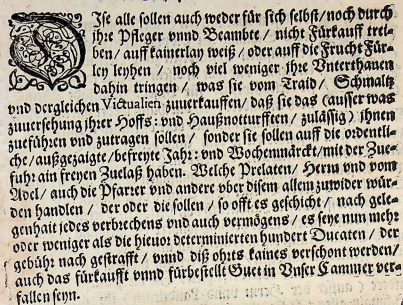 DIse alle sollen auch weder für sich selbst/noch durch
ihre Pfleger vnnd Beambte/ nicht Fürkauff trei-
ben/ auff kainerlay weiß/ oder auff die Frucht Für-
ley leyhen/ noch viel weniger ihre Vnterthanen
dahin tringen/ was sie vom Traid/ Schmaltz
vnd dergleichen Victualien zuuerkauffen/ daß sie das (ausser was
zuuersehung jhrer Hoffs: vnd Haußnotturfften/ zulässig) ihnen
zueführen vnd zutragen sollen/ sonder sie sollen auff die ordentli-
che/ außgezaigte/befreyte Jahr: vnd Wochenmärckt/mit der Zue-
fuhr ain freyen Zuelaß haben. Welche Prelaten/ Herrn vnd vom
Adel/ auch die Pfarrer vnd andere vber disem allem zuwider wür-
den handlen/ der oder die sollen/ so offt es geschicht/ nach gele-
genhait jedes verbrechens vnd auch vermögens/ es seye nun mehr
oder weniger als die hieuor determinierten hundert Ducaten/ der
gebühr nach gestrafft/ vnnd diß ohrts kaines verschont werden/
auch das fürkaufft vnnd fürbestellt Guet in Vnser Cammer ver-
fallen seyn.